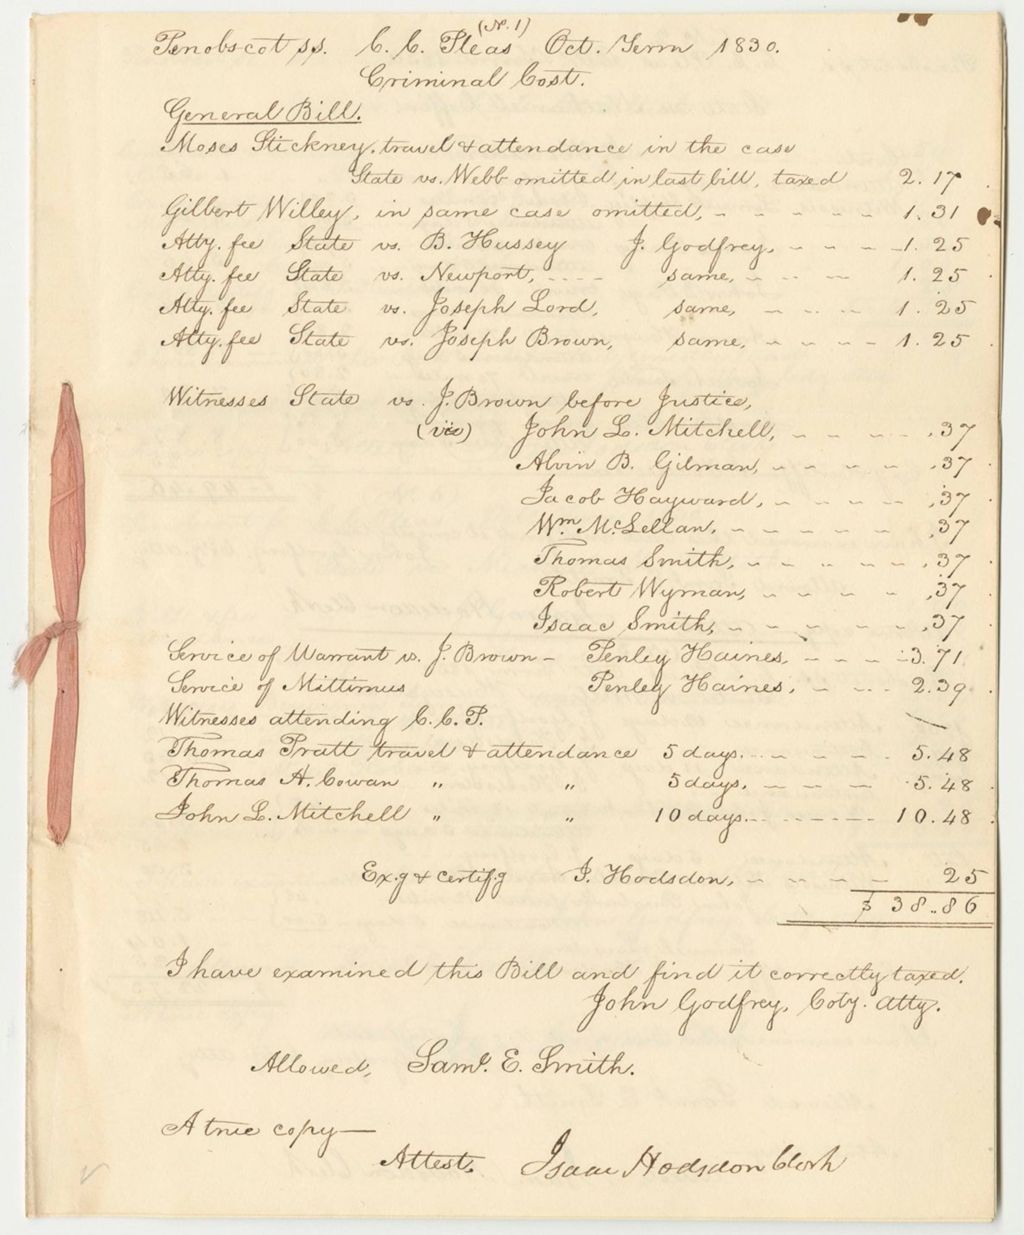 (No. 1)
Penobscot ss. C. C. Pleas Oct. Term 1830.
Criminal Cost.
General Bill.
Moses Stickney, travel & attendance in the case
State vs. Webb omitted in last bill, taxed 2.17
Gilbert Willey, in same case omitted, 1.31
Atty. fee State vs. B. Hussey J. Godfrey, 1.25
Atty. fee State vs. Newport, same, 1.25
Atty. fee State vs. Joseph Lord, same, 1.25
Atty. fee State vs. Joseph Brown, same, 1.25
Witnesses State vs. J. Brown before Justice,
(viz) John L. Mitchell, .37
Alvin B. Gilman, .37
Jacob Hayward, .37
Wm. McLellan, .37
Thomas Smith, .37
Robert Wyman, .37
Isaac Smith, .37
Service of Warrant vs. J. Brown - Penley Haines, 3.71
Service of Mittimus Penley Haines, 2.39
Witnesses attending C. C. P.
Thomas Pratt travel & attendance 5 days. 5.48
Thomas A. Cowan " " 5 days. 5.48
John L. Mitchell " " 10 days. 10.48
Ex.g & certif.g I. Hodsdon, 25
$ 38.86
I have examined this Bill and find it correctly taxed.
John Godfrey, Coty. Atty.
Allowed, Saml. E. Smith.
A true copy—
Attest, Isaac Hodsdon Clerk